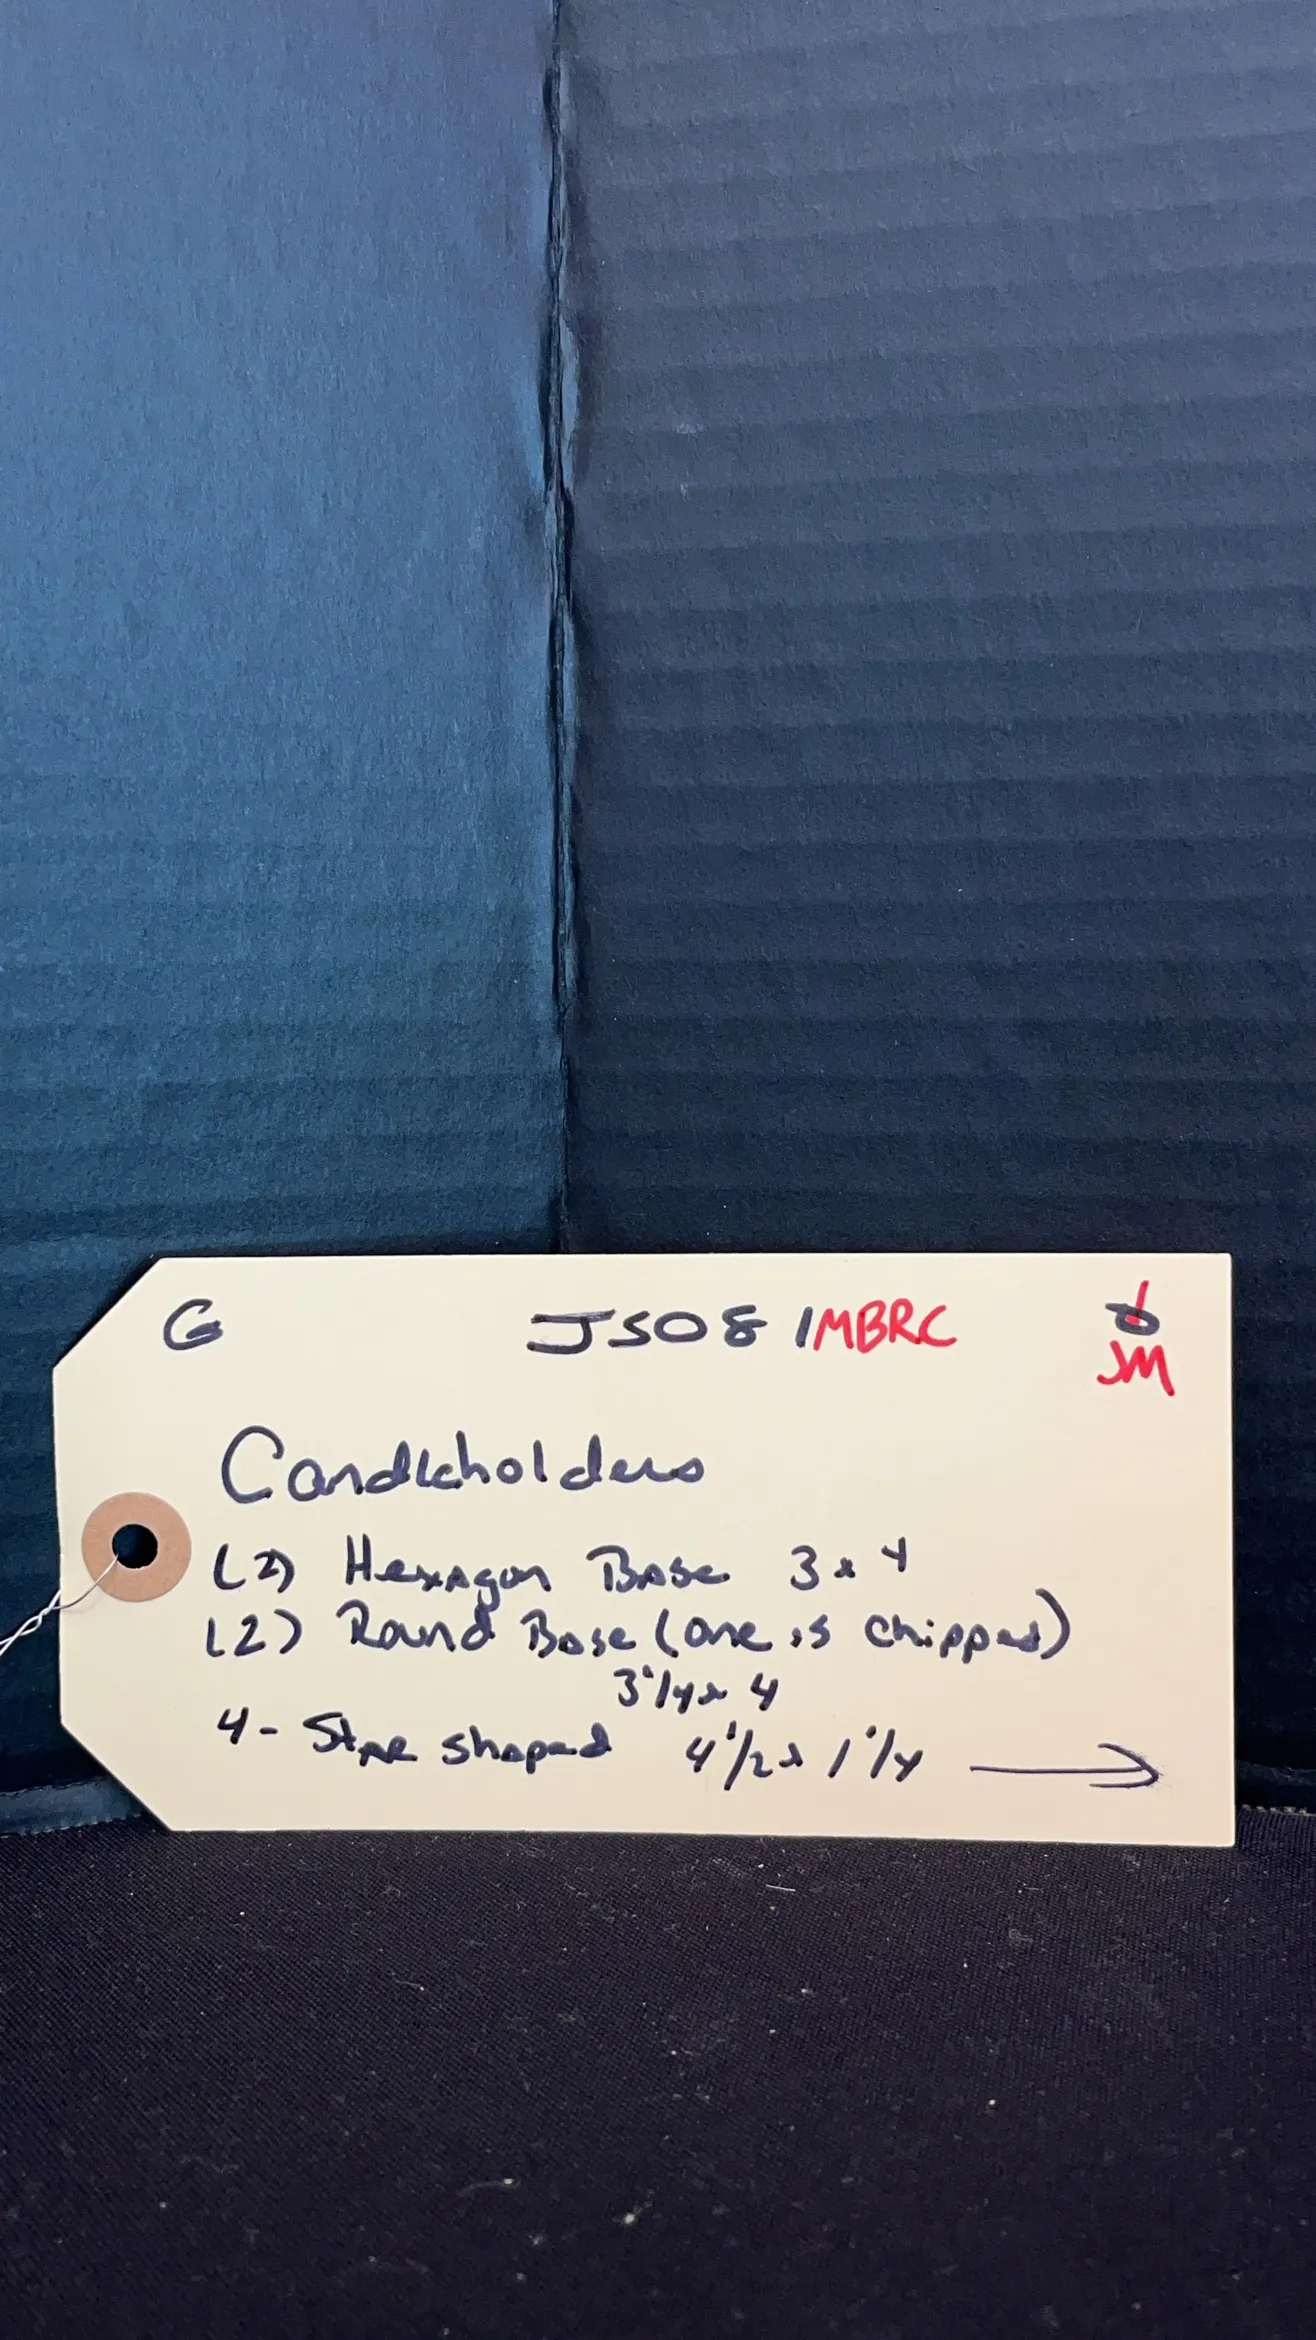 G JS081MBRC
JM
Candleholders
(2) Hexagon Base 3 x 4
(2) Round Base (one is chipped)
3 1/4 x 4
4 - Star shaped 4 1/2 x 1 1/4 →